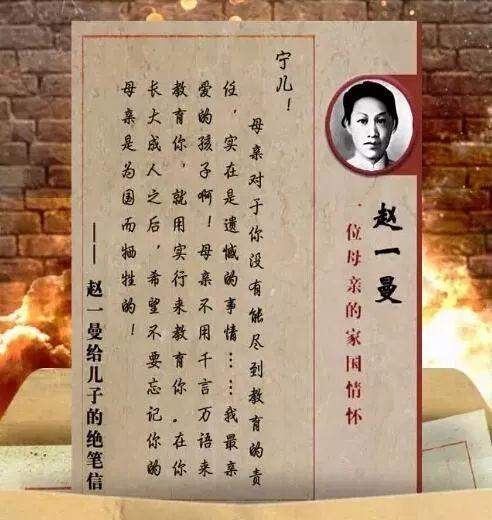 赵一曼
一位母亲的家国情怀
宁儿！
母亲对于你没有能尽到教育的责
任，实在是遗憾的事情……我最亲
爱的孩子啊！母亲不用千言万语来
教育你，就用实行来教育你。在你
长大成人之后，希望不要忘记你的
母亲是为国而牺牲的！
——赵一曼给儿子的绝笔信